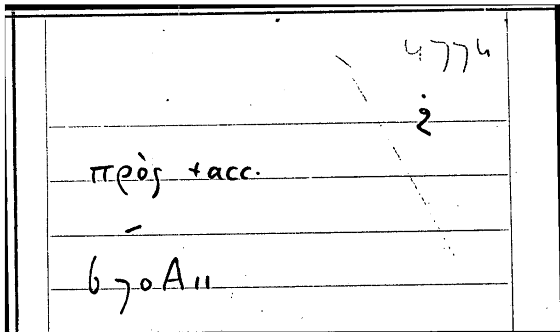 4774
πρὸς +acc.
670A11